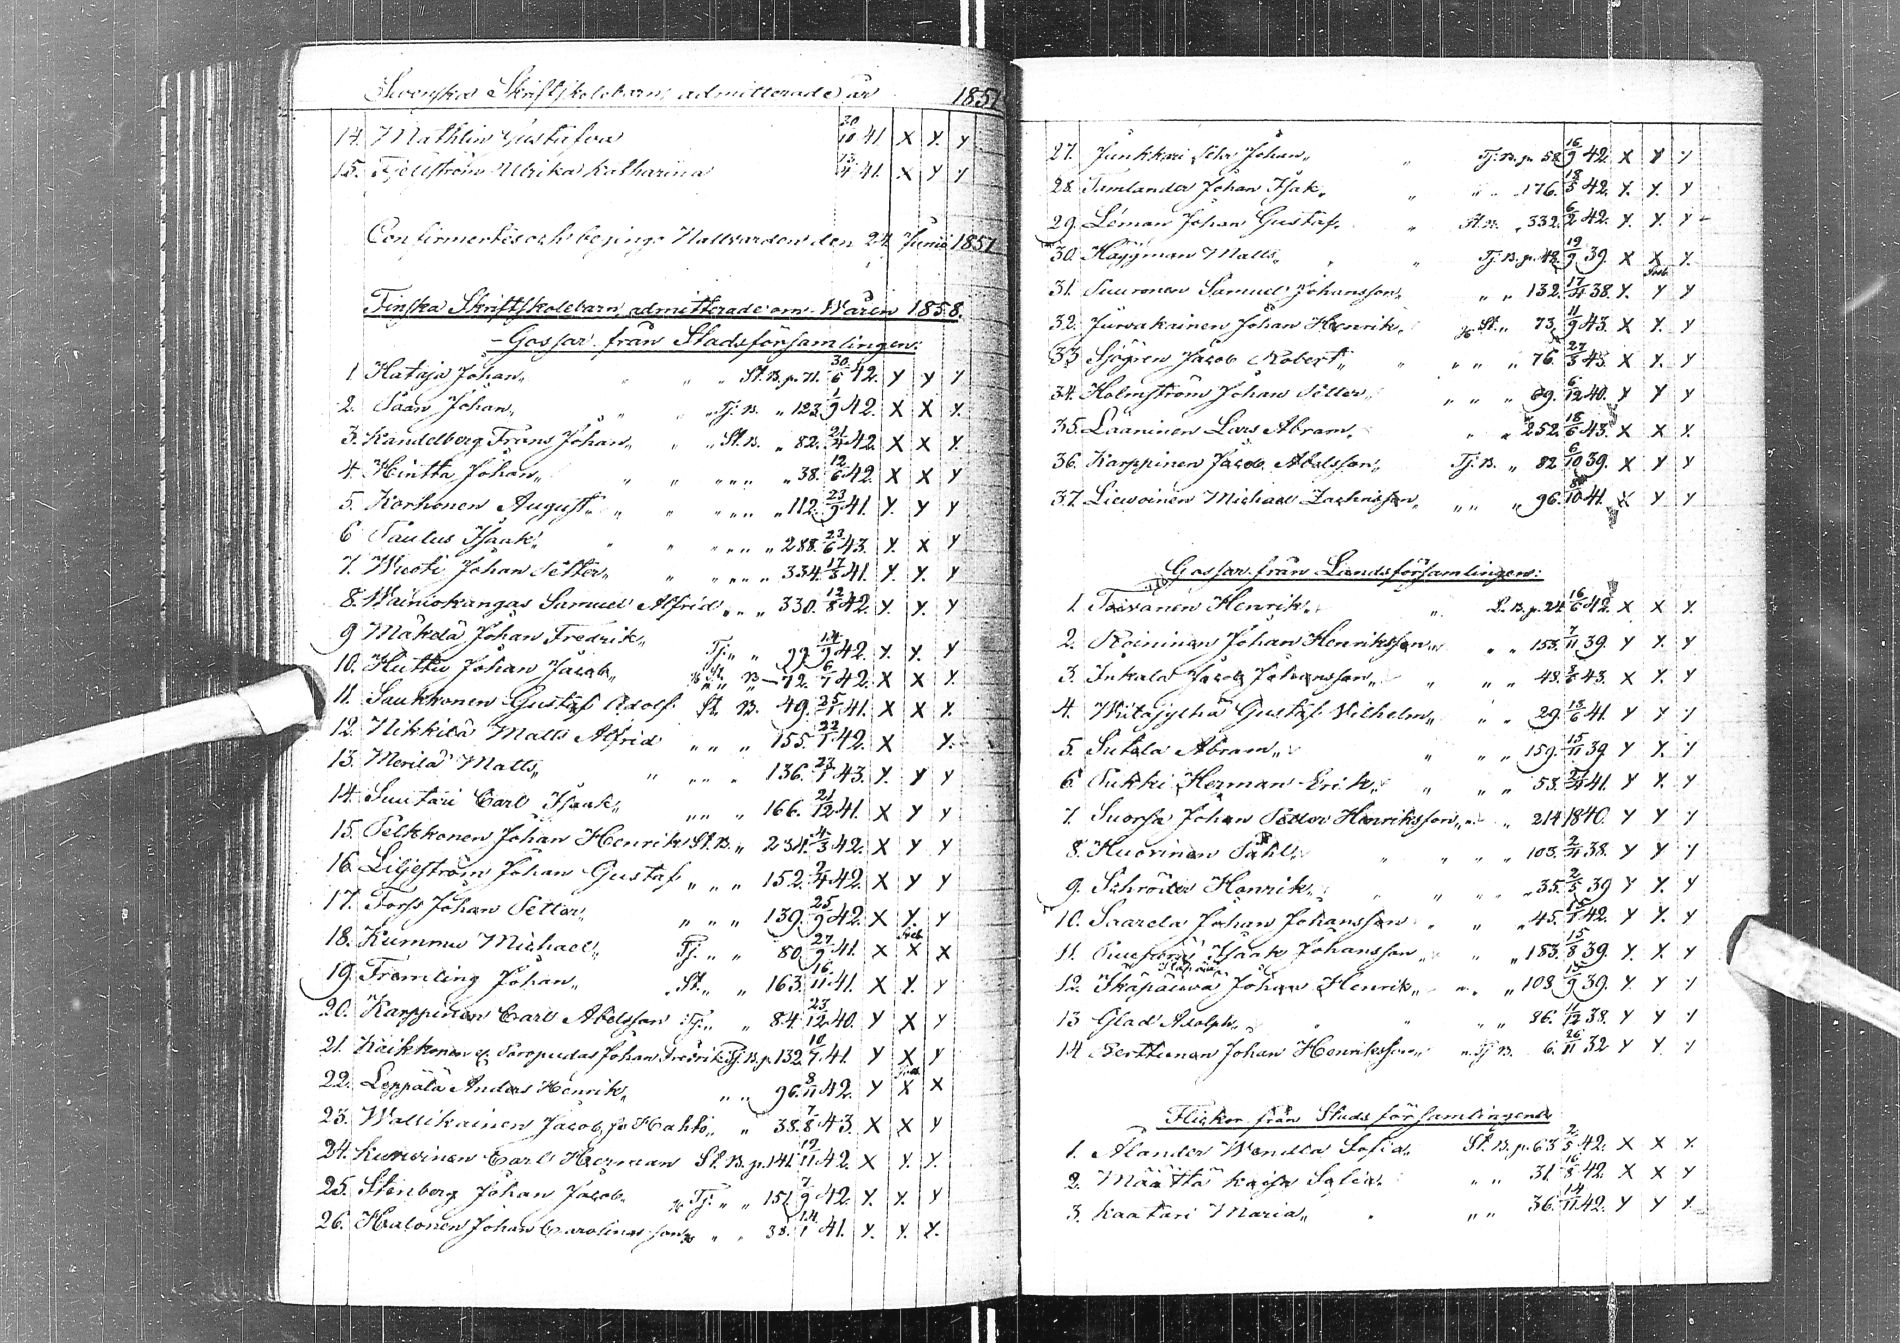 Svenska Skriftskolebarn, admitterade år 1857
14. Mathlin Gustafva 20/10 41 X Y. Y
15. Fjellström Ulrika Katharina 13/4 41. X Y Y
Confirmerades och begingo Nattvarden den 24 Junii 1857
Finska Skriftskolebarn admitterade om Våren 1858.
Gossar från Stadsförsamlingen:
1 Hataja Johan, " " " St. B. p. 71. 30/6 42. Y Y Y
2. Saari Johan, " " " Tj. B. " 123. 1/9 42. X X Y.
3. Kandelberg Frans Johan, " " St. B. " 82. 21/4 42. X X Y.
4. Hintta Johan, " " " " " " 38. 12/6 42. X X Y
5. Korhonen August " " " " " " 112. 23/9 41. Y. Y Y
6 Paulus Isaak, " " " " " " 288. 23/6 43. Y. X Y
7. Johan Petter, " " " " " 334. 17/3 41. Y. Y. Y
8. Wainiokangas Samuel Alfrid " " " 330. 12/8 42. Y. Y. Y
9 Mäkelä Johan Fredrik, Tj. " " 14/9 42. Y. Y. Y
10. Huttu Johan Jacob, " " B 72. 6/7 42. X X Y.
11. Saukkonen Gustaf Adolf St. B. 49. 25/1 41. X X Y.
12. Nikkilä Matts Alfrid " " " 155. 22/1 42. X Y.
13. Merilä Matts, " " " " 136. 23/1 43. Y. Y Y
14. Suutari Carl Isaak, " " " 166. 21/12 41. X Y Y
15. Pelkkonen Johan Henrik St. B. " 234. 4/3 42. X Y Y
16. Liljeström Johan Gustaf " " " 152. 2/4 42. X Y Y
17. Forss Johan Petter, " " " 139. 25/9 42. X Y. Y
18. Kummu Michael, Tj. " " 80. 27/9 41. X X X
19. Frömling Johan, St. " " 163. 16/11 41. X Y. Y
20. Karppinen Carl Abelsson Tj. " " 84. 23/12 40. Y X Y
21. Johan Fredrik Tj. B. p. 132. 10/7 41. Y X Y
22. Leppälä Anders Henrik, " " 96. 8/11 42. Y X X
23. Wallikainen Jacob, " 38. 7/8 43. X X Y
24. Carl Herman St. B. p. 141. 19/11 42. X Y. Y.
25. Stenberg Johan Jacob Tj. " " 151 7/9 42. Y. Y. Y
26. Halonen Johan Carolinasson " " 38. 14/1 41. Y. Y. Y.
27. Junkkari Johan, " Tj. B. p. 58. 16/9 42. X Y Y
28. Tamlander Johan Isak, " " " 176. 18/5 42. Y. Y. Y
29. Leman Johan Gustaf. " St. B. " 332. 6/2 42. Y. Y. Y
30. Häggman Matts, " " Tj. B. p. 48. 19/9 39. X X Y.
31. Suuronen Samuel Johansson, " " 132. 17/4 38. Y. Y Y
32. Jurvakainen Johan Henrik, St. " 73. 11/9 43. X Y. Y
33 Sjögren Jacob Robert, " " " " 76. 27/3 43. X Y. Y
34. Holmström Johan Petter, " " " 29. 6/12 40. Y Y Y
35. Lääninen Lars Abram, " " 252. 18/6 43. X X Y.
36. Karppinen Jacob Abelsson, Tj. B. " 82 6/10 39. X Y Y
37. Michael Zachrisson, " " " 96. 8/10 41. X Y Y
Gossar från Landsförsamlingen:
1. Toivanen Henrik, " L. B. p. 24 16/6 42. X X Y.
2. Roininen Johan Henriksson, " " " 153. 7/11 39. Y Y Y
3. Inkala Jacob Johansson, " " " 48. 43. X Y. Y
4. Gustaf Wilhelm, " " 29. 13/6 41. Y Y Y
5. Sutela Abram, " " " 159. 15/11 39 Y Y. Y
6 Pukki Herman Erik, " " " 53. 41. Y Y Y
7. Suorsa Johan Petter Henriksson, " " 214 1840. Y Y Y
8. Huovinen Påhl, " " " " 103. 2/4 38. Y Y Y
9. Schröder Henrik, " " " " 35. 2/5 39 Y Y. Y
10. Saarela Johan Johansson " " " 45. 42. Y Y. Y
11. Isaak Johansson " " " 183. 15/8 39. Y. Y. Y
12. Ikäpäivä Johan Henrik, " " " 108 15/9 39. Y. Y Y
13 Glad Adolph, " " " " 86. 1/12 38. Y Y Y
14 Perttunen Johan Henriksson " Tj. B. 6. 26/11 32 Y Y Y
Flickor från Stadsförsamlingen
1. Ålander Wendla Sofia, St. B. p. 63 2/5 42. X X Y.
2. Määttä Kaisa " " 31. 16/8 42. X X Y
3. Kaatari Maria, " " " 36. 14/11 42. Y Y Y